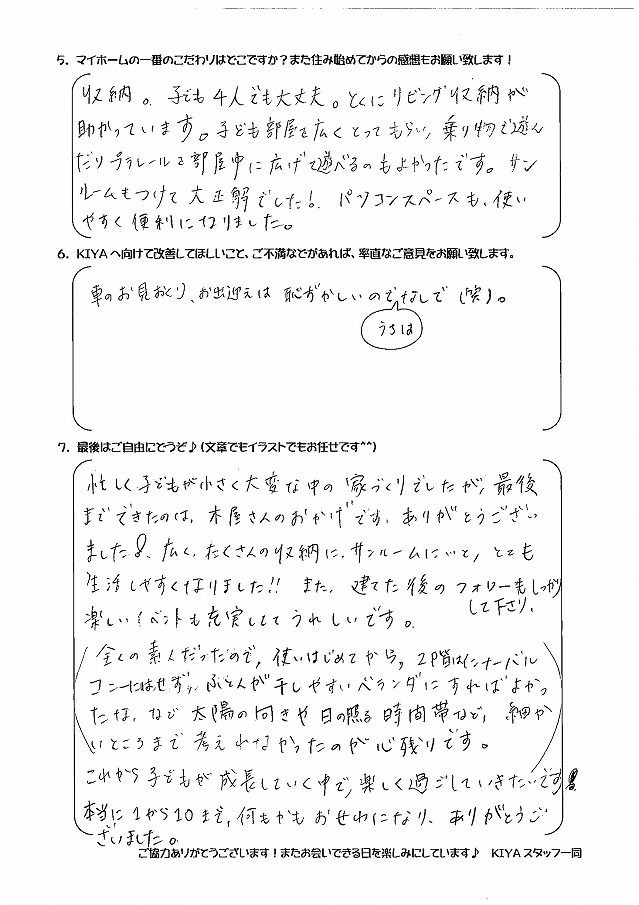 5. マイホームの一番のこだわりはどこですか？また住み始めてからの感想もお願い致します！
収納。子ども4人でも大丈夫。とくにリビング収納が
助かっています。子ども部屋を広くとってもらい、乗り物で遊ん
だりプラレールを部屋中に広げて遊べるのもよかったです。サン
ルームもつけて大正解でした！．パソコンスペースも、使い
やすく便利になりました。
6. KIYAへ向けて改善してほしいこと、ご不満などがあれば、率直なご意見をお願い致します。
車のお見おくり、お出迎えは恥ずかしいのでなしで(笑)。
うちは
7. 最後はご自由にどうぞ♪(文章でもイラストでもお任せです^^)
忙しく子どもが小さく大変な中の家づくりでしたが、最後
までできたのは、木屋さんのおかげです。ありがとうござい
ました。広く、たくさんの収納に、サンルームにいと、とても
生活しやすくなりました!! また、建てた後のフォローもしっかり
して下さり、
楽しいイベントも充実しててうれしいです。
全くの素人だったので、使いはじめてから、2階はインナーバル
コニーにはせず、ふとんが干しやすいベランダにすればよかっ
たな、など太陽の向きや日の照る時間帯など、細か
いところまで考えれなかったのが心残りです。
これから子どもが成長していく中で、楽しく過ごしていきたいです
本当に1から10まで、何もかもおせわになり、ありがとうご
ざいました。
ご協力ありがとうございます！またお会いできる日を楽しみにしています♪ KIYAスタッフ一同